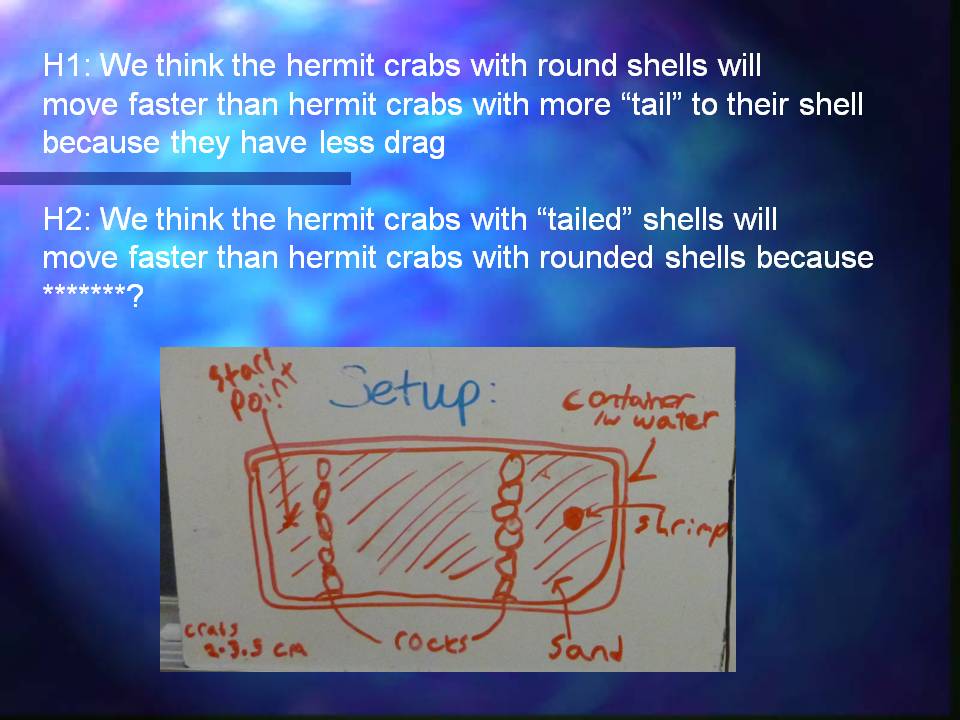 H1: We think the hermit crabs with round shells will
move faster than hermit crabs with more “tail” to their shell
because they have less drag
H2: We think the hermit crabs with “tailed” shells will
move faster than hermit crabs with rounded shells because
*******?
start
point
Setup:
container
/w water
shrimp
crabs
2-3.5 cm
rocks
sand